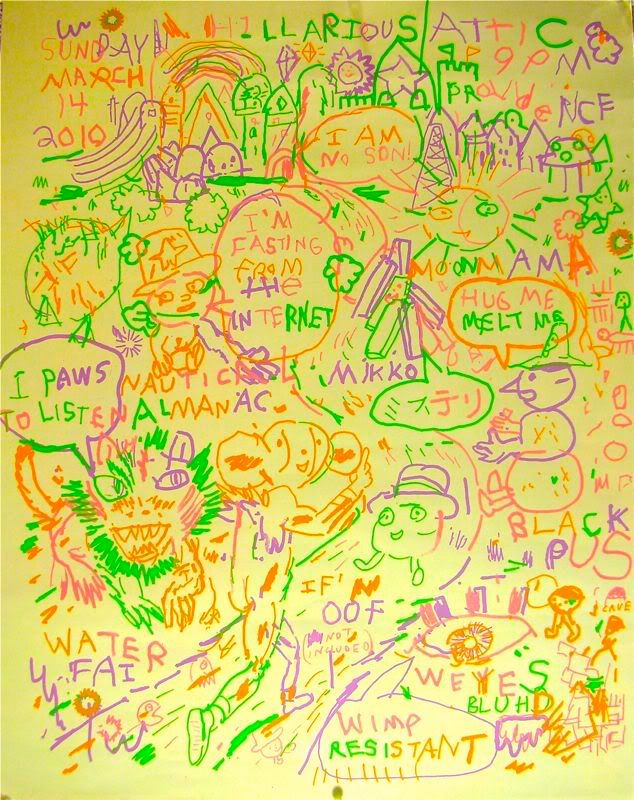 HILLARIOUS ATTIC
SUNDAY
MARCH
14
2010
9PM
PROVIDENCE
I AM
NO SON!
I'M
CASTING
FROM
THE
INTERNET
MOONMAMA
HUG ME
MELT ME
I PAWS
TO LISTEN
NAUTICAL
ALMANAC
MIKKO
ミステリ
BLACK
PUS
IF'N
OOF
(NOT
INCLUDED)
CAVE
WEYE'S
BLUHD
WATER
FAI
WIMP
RESISTANT